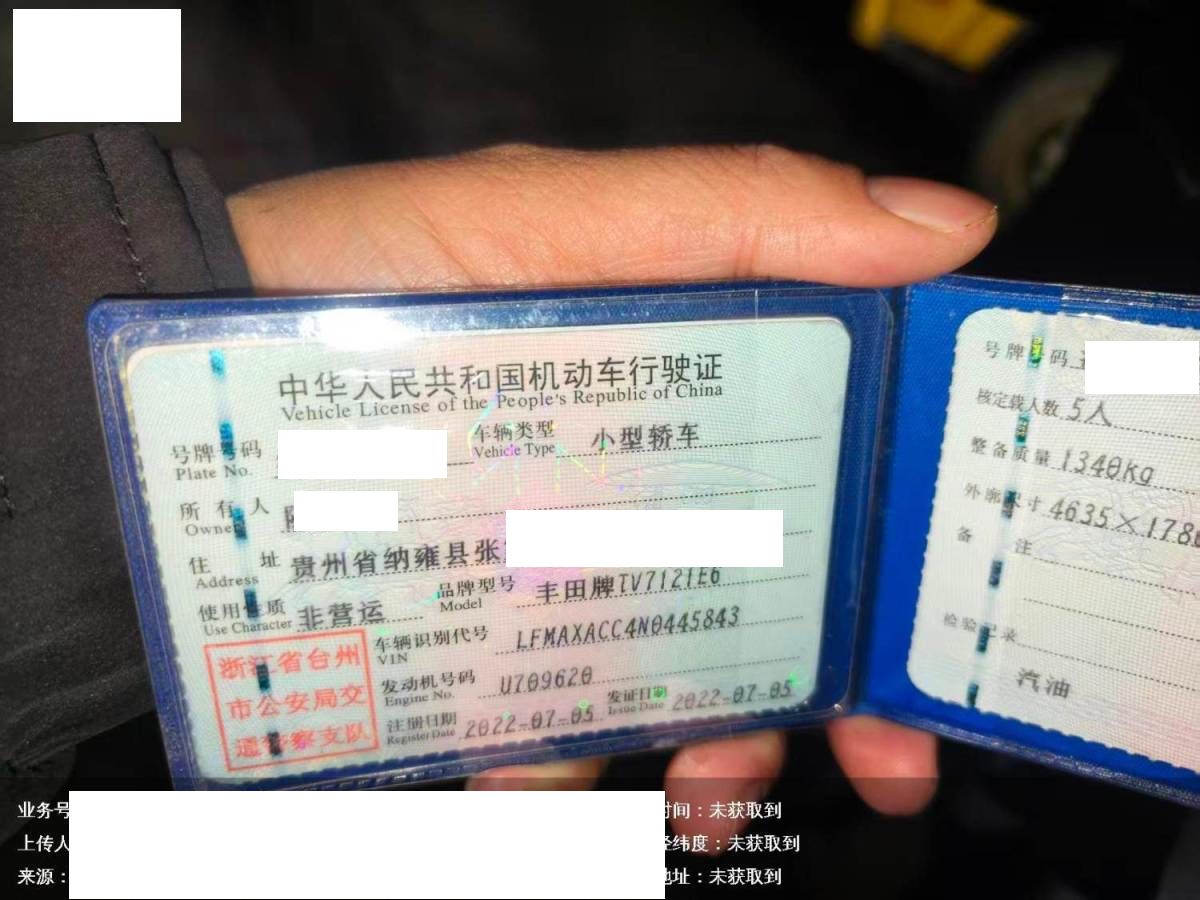 中华人民共和国机动车行驶证
Vehicle License of the People's Republic of China
号牌号码
Plate No.
车辆类型 小型轿车
Vehicle Type
所有人
Owner
住址 贵州省纳雍县张
Address
使用性质 非营运
Use Character
品牌型号 丰田牌TV7121E6
Model
车辆识别代号 LFMAXACC4N0445843
VIN
发动机号码 U709620
Engine No.
注册日期 2022-07-05
Register Date
发证日期 2022-07-05
Issue Date
浙江省台州
市公安局交
通警察支队
号牌号码
核定载人数 5人
整备质量 1340kg
外廓尺寸 4635×178
备注
检验记录
汽油
业务号
时间：未获取到
上传人
经纬度：未获取到
来源：
地址：未获取到